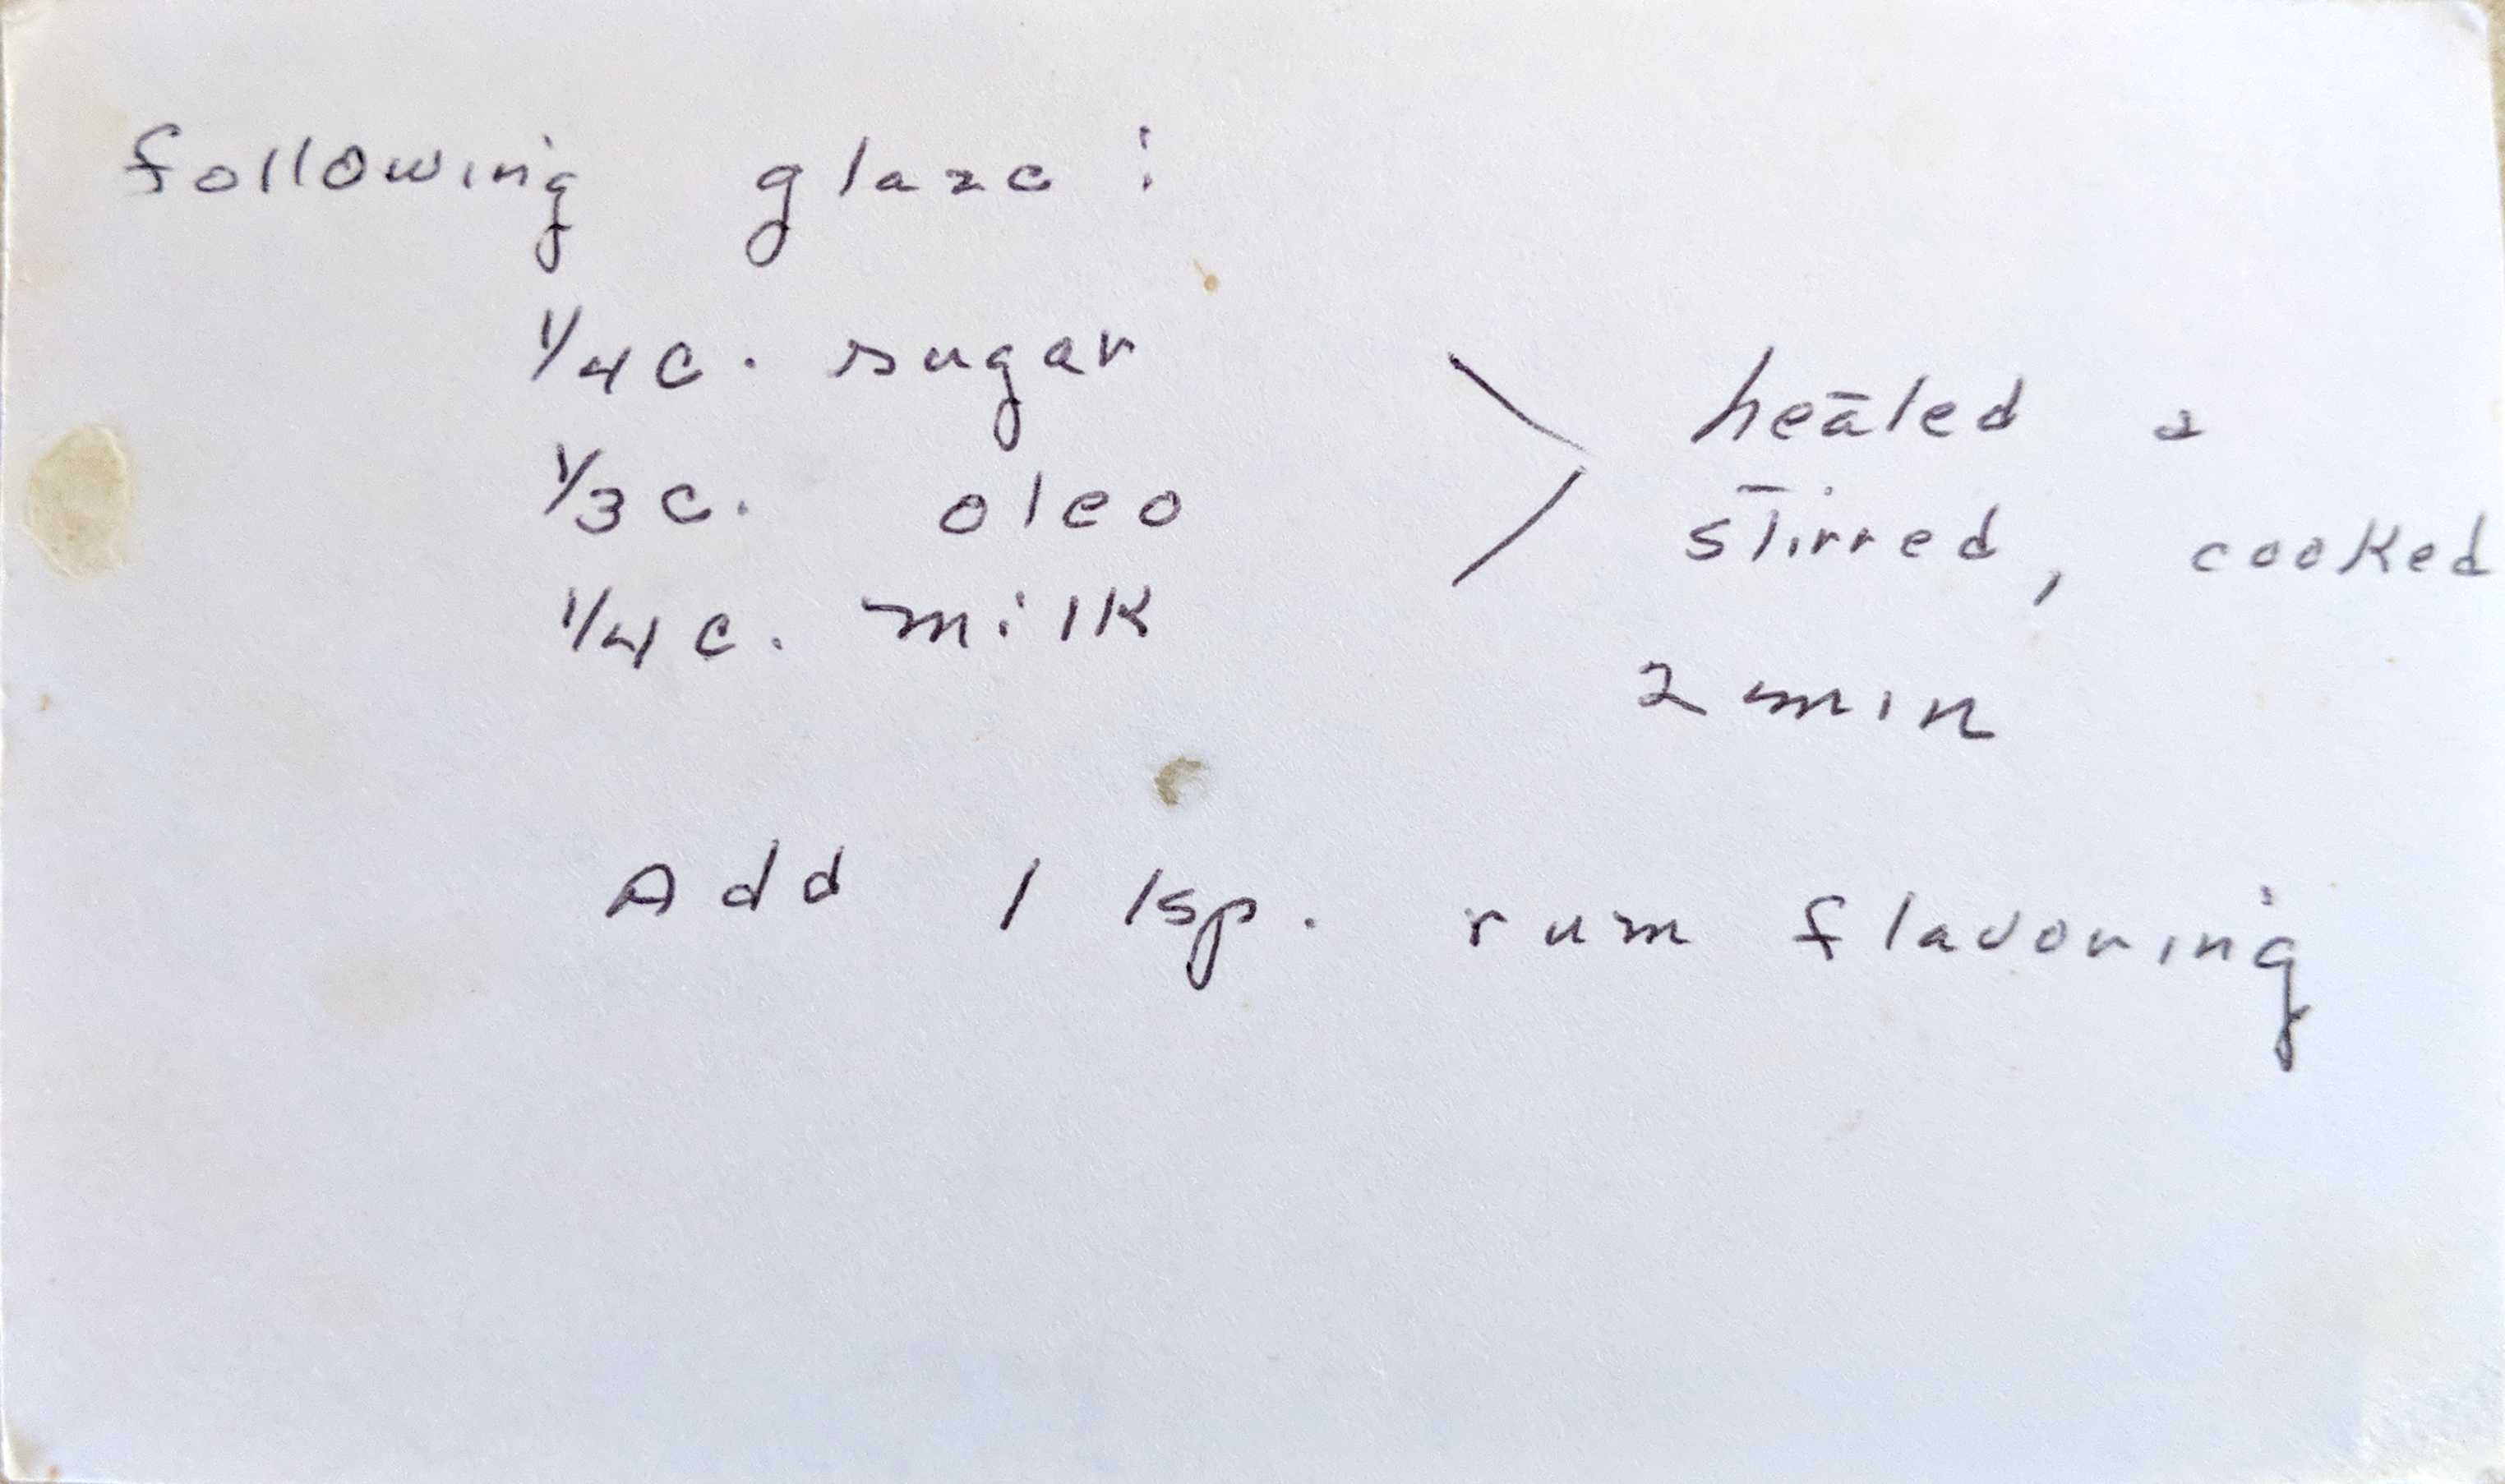 following glaze:
1/4 c. sugar
1/3 c. oleo
1/4 c. milk
heated &
stirred, cooked
2 min
Add 1 tsp. rum flavoring